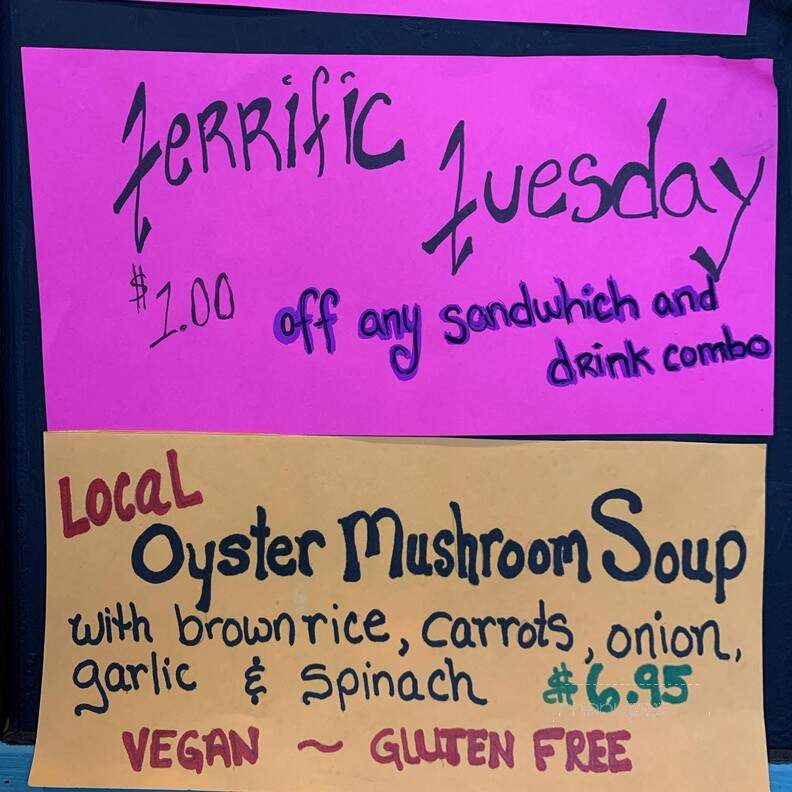 Terrific
Tuesday
$1.00 off any sandwhich and
drink combo
LOCAL
Oyster Mushroom Soup
with brown rice, carrots, onion,
garlic & spinach $6.95
VEGAN ~ GLUTEN FREE